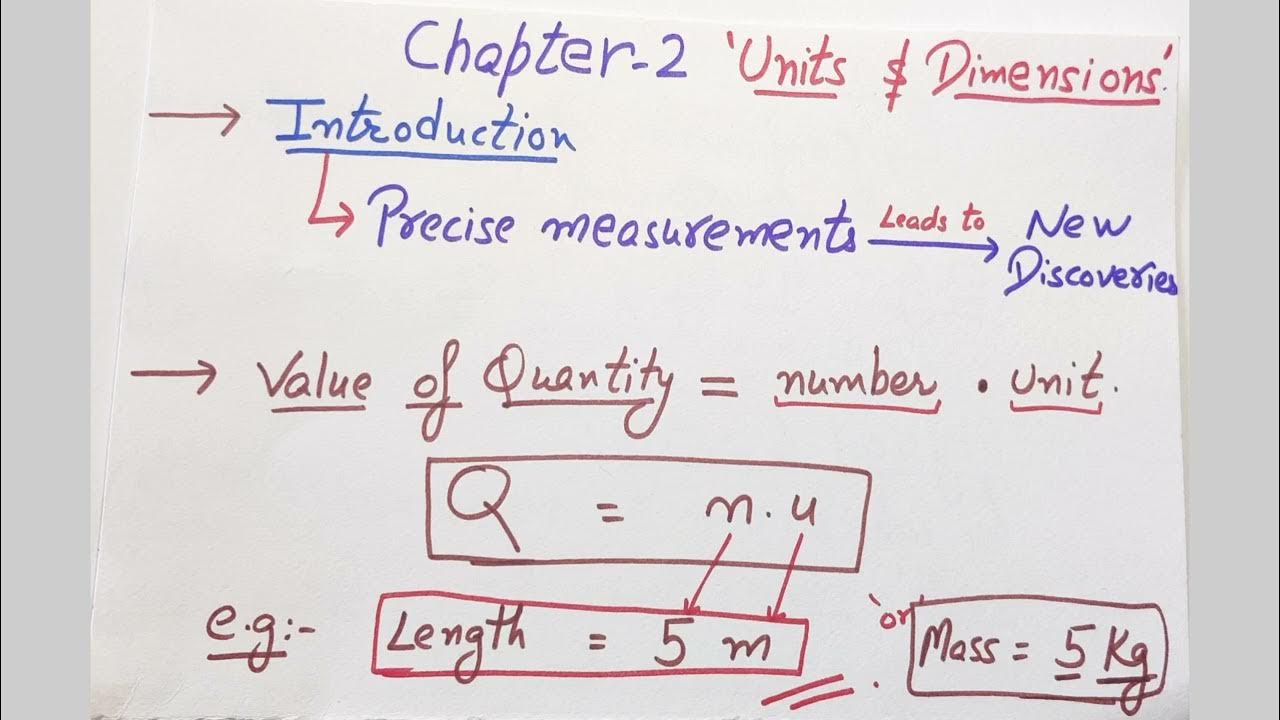 Chapter-2 'Units & Dimensions'
→ Introduction
↳ Precise measurements Leads to → New Discoveries
→ Value of Quantity = number . unit.
Q = n.u
e.g:- Length = 5 m 'or' Mass = 5 Kg